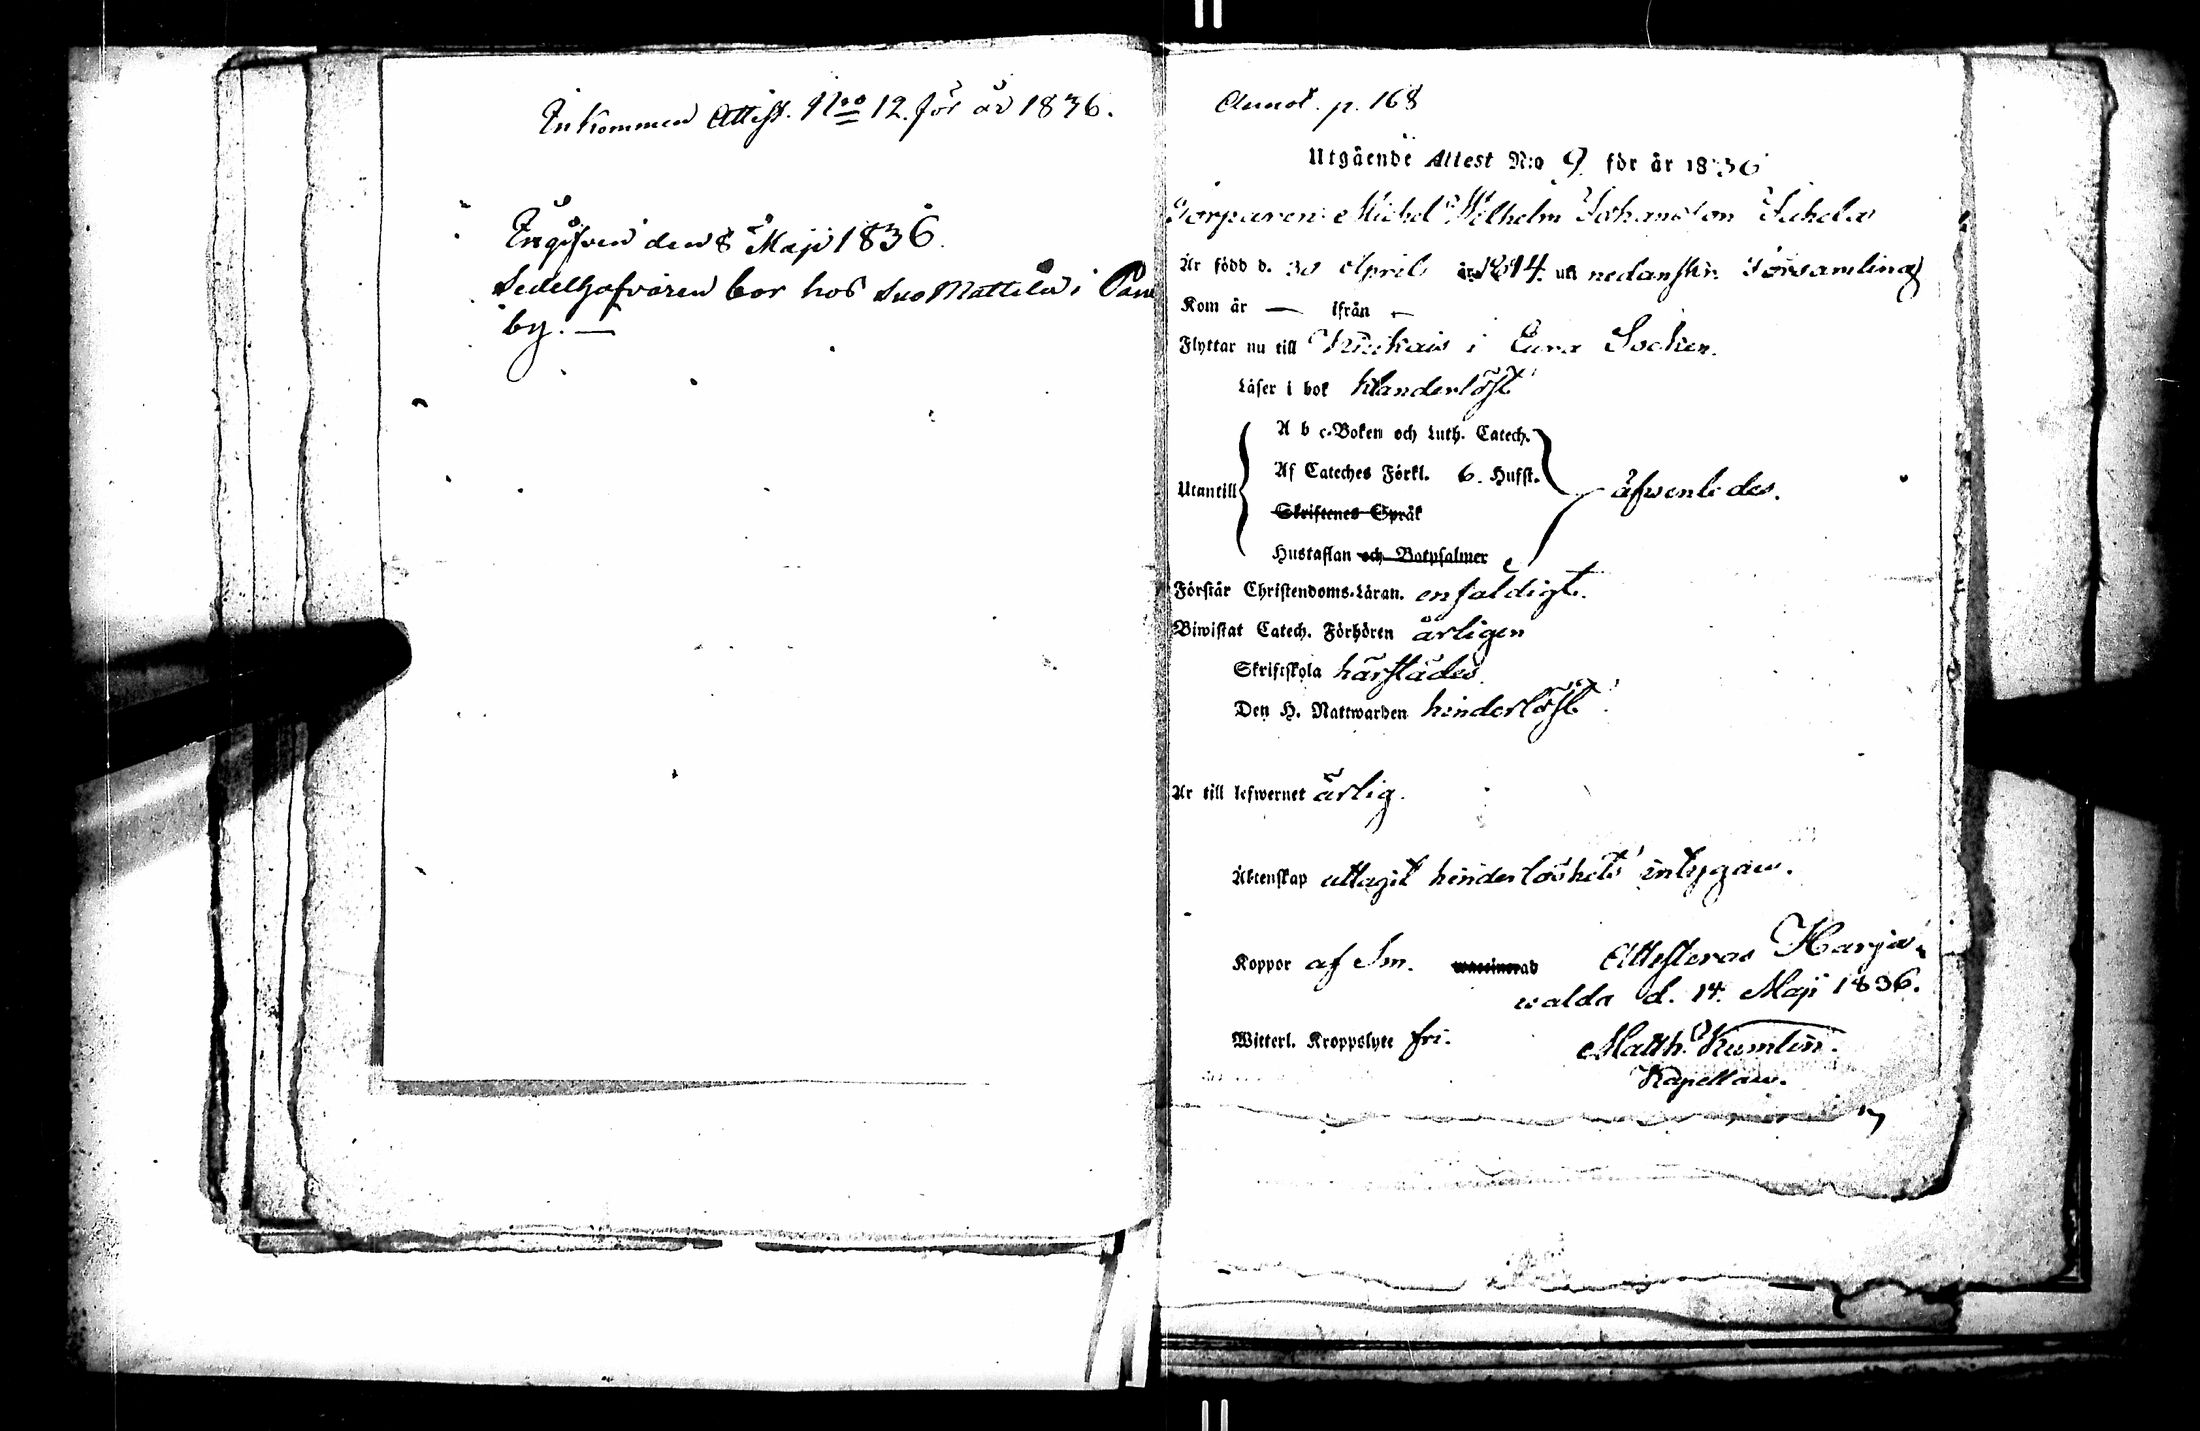 Inkommen Attest. N:o 12. för år 1836.
Ingifven den 8 Maji 1836.
Sedelhafvaren bor hos Suo Mattila i
by. —
Annot. p. 168
Utgående Attest N:o 9. för år 1836
Torparen Michel Wilhelm Johansson
Är född d. 30 April år 1814. uti nedanskr. Församling
Kom år — ifrån —
Flyttar nu till i Eura Socken.
Läser i bok klanderlöst
A b c-Boken och Luth. Catech.
Af Cateches Förkl. 6. Hufst.
Utantill äfwenledes.
Skriftenes Språk
Hustaflan och Botpsalmer
Förstår Christendoms-Läran. enfaldigt.
Biwistat Catech. Förhören årligen
Skriftskola härstädes
Den H. Nattwarden hinderlöst
Är till lefwernet ärlig.
Äktenskap uttagit hinderlöshets intygan.
Koppor af Sm. waccinerad Attesteras Harja-
walda d. 14. Maji 1836.
Witterl. Kroppslyte fri.
Matth. Kumlin.
Kapellan.